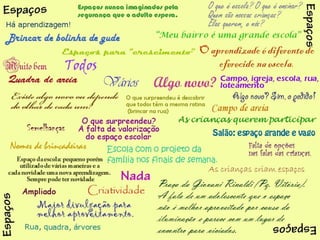 Espaços
Espaços nunca imaginados pela
segurança que o adulto espera.
O que é escola? O que é ensinar?
Quem são nossas crianças?
Elas querem, o nós?
Espaços
Há aprendizagem!
Brincar de bolinha de gude
"Meu bairro é uma grande escola"
Espaços para "crescimento"
O aprendizado é diferente do
oferecido na escola.
Muito bem
Todos
Quadra de areia
Vários
Algo novo?
Campo, igreja, escola, rua,
loteamento
Existe algo novo ou depende
do olhar de cada um?
O que surpreendeu é descobrir
que todos têm a mesma rotina
(brincar na rua)
Algo novo? Sim, o gritão!
Campo de areia
Semelhanças
O que surpreendeu?
A falta de valorização
do espaço escolar
As crianças querem participar
Salão: espaço grande e vago
Nomes de brincadeiras
Escola com o projeto da
família nos finais de semana.
Falta de opções
nas falas das crianças.
Espaço da escola: pequeno porém
utilizado de várias maneiras e a
cada novidade uma nova aprendizagem.
Sempre pode ter novidade
As crianças criam espaços
Nada
Ampliado
Criatividade
Praça do Giovani Rinaldi (Pq. Vitória).
A fala de um adolescente que o espaço
não é melhor aproveitado por causa da
iluminação e parece sem um lugar de
encontro para viciados.
Maior divulgação para
melhor aproveitamento.
Espaços
Rua, quadra, árvores
Espaços